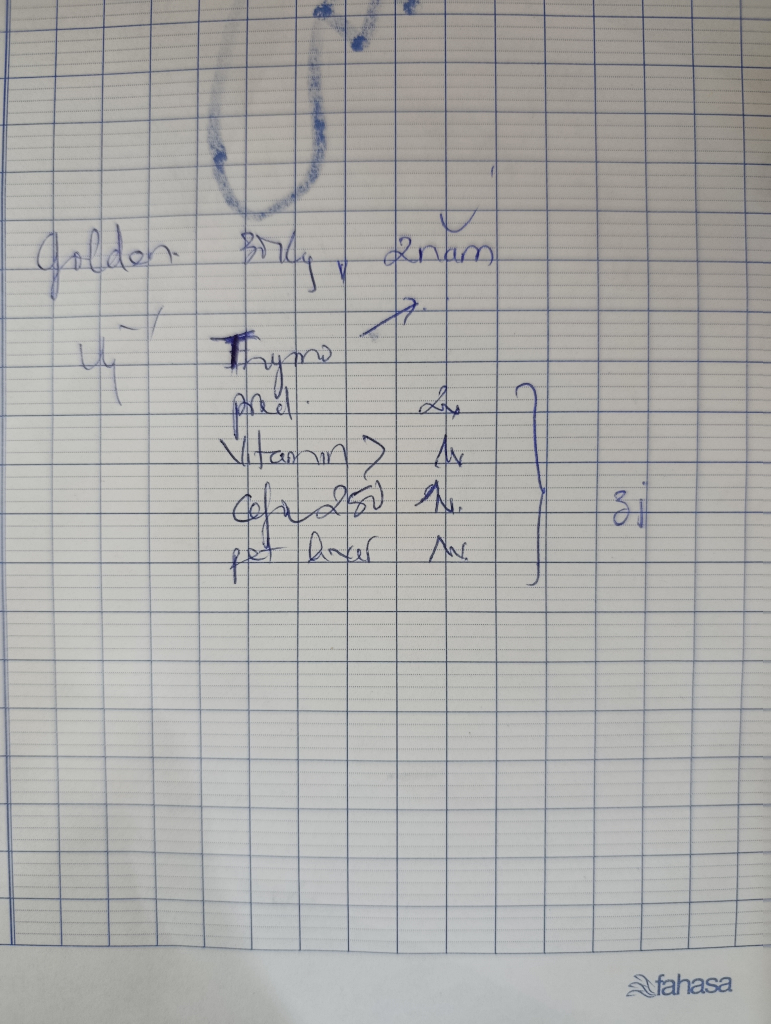 Golden 30kg, 2 năm
Thymo
pred. 2v
Vitamin 1v
Cefa 250 1v.
pet liver 1v
3j
fahasa